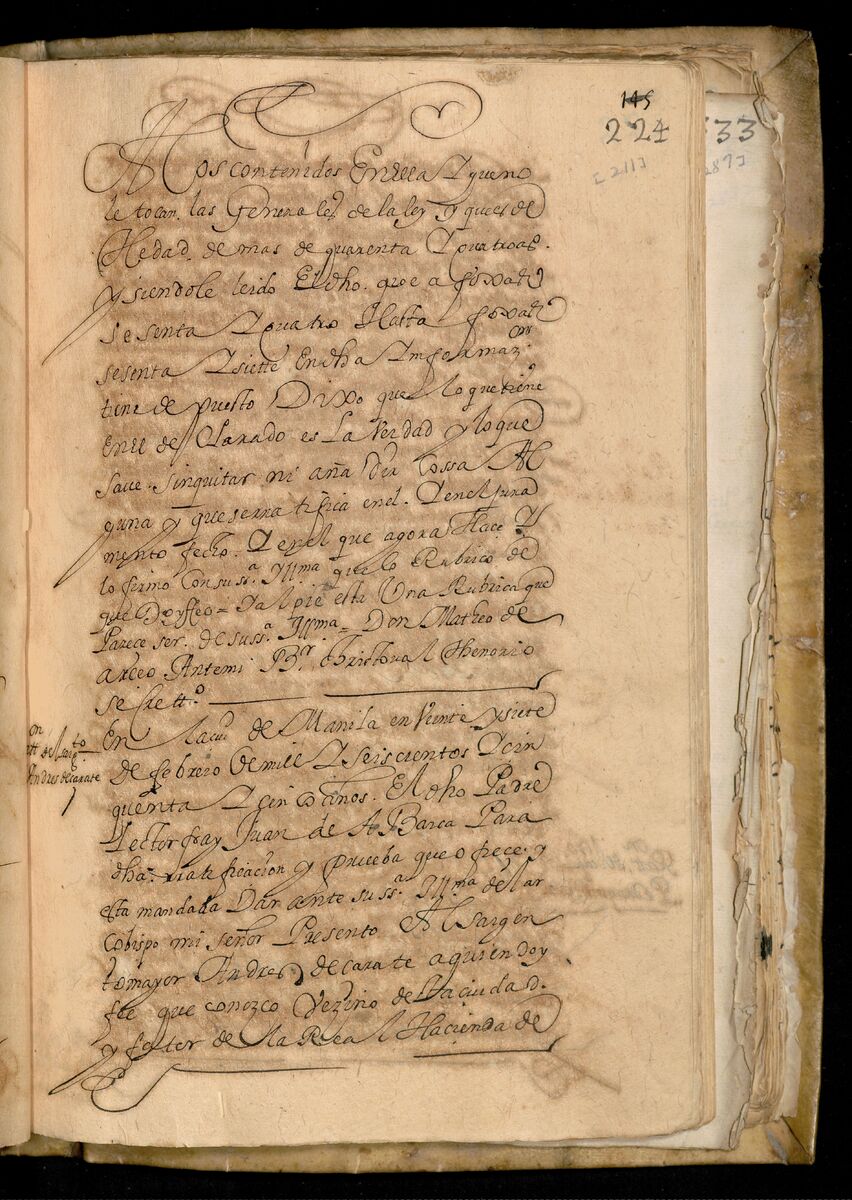 145
224
33
[211]
289]
Alos contenidos En ella Y que no
le tocan las Generales de la ley Y ques de
Hedad de mas de quarenta Y quatro as.
Y siendole leido El dho. que a foxas
sesenta Y quatro Hasta foxas
sesenta Y siette En dha Informaz.on
tiene de puesto Dixo que lo que tiene
En el de Clarado es La Verdad y lo que
save sin quitar ni aña Dir Cossa Al
guna y que se rratifica en el. Y en el jura
mento fecho. Y en el que agora Hace Y
lo firmo Con su ss.a Yll.ma que lo Rubrico de
que Doy ffee = Y al pie esta Una Rubrica que
Parece ser. de su ss.a Yll.ma = Don Matheo de
arceo Antemi B.r Christoval Thenorio
secrett.o
En la ciu.d de Manila en Veinte y siete
de febrero de mill Y seiscientos Y cin
quenta Y cinco años. El dho Padre
Lector fray Juan de A Barca Para
dha. rratificacion y prueba que ofrece. y
esta mandada Dar ante su ss.a Yll.ma del ar
Cobispo mi señor Presento Al sargen
to mayor Andres de carate a quien doy
fee que conozco Vezino de esta ciudad.
y fator de la Real Hacienda de
Andres de carate